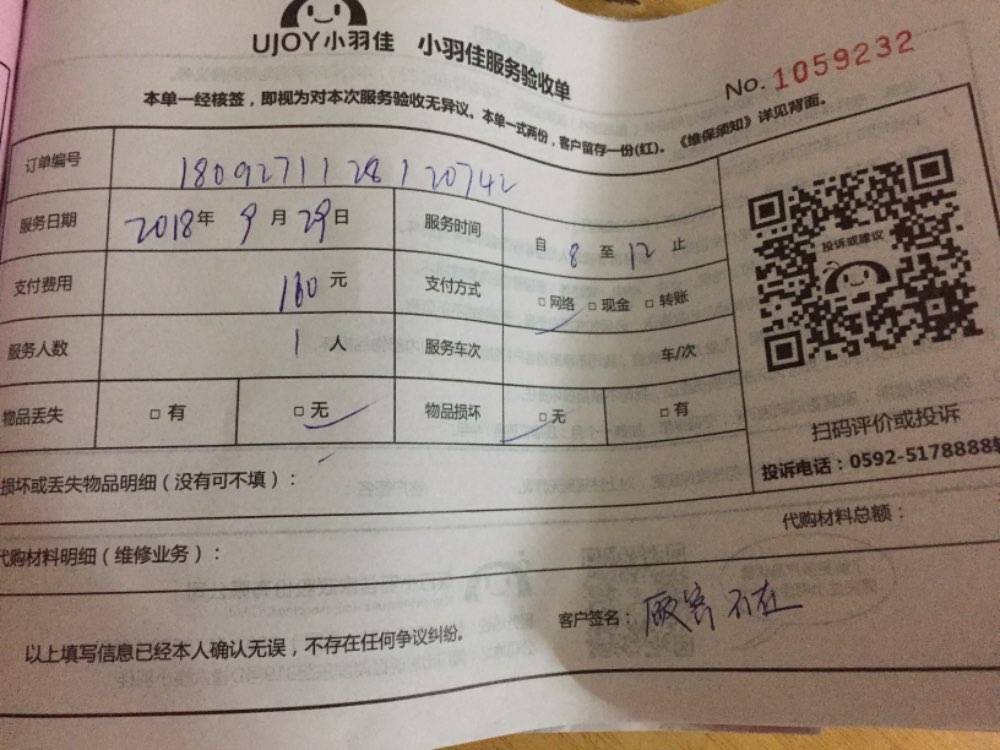 UJOY小羽佳 小羽佳服务验收单
No. 1059232
本单一经核签，即视为对本次服务验收无异议。本单一式两份，客户留存一份(红)。《维保须知》详见背面。
订单编号 1809271128120742
服务日期 2018年9月29日 服务时间 自8至12止
支付费用 160元 支付方式 □网络 □现金 □转账
服务人数 1人 服务车次 车/次
物品丢失 □有 □无 物品损坏 □无 □有
投诉或建议
扫码评价或投诉
投诉电话：0592-5178888
损坏或丢失物品明细（没有可不填）：
代购材料明细（维修业务）： 代购材料总额：
以上填写信息已经本人确认无误，不存在任何争议纠纷。 客户签名： 不在